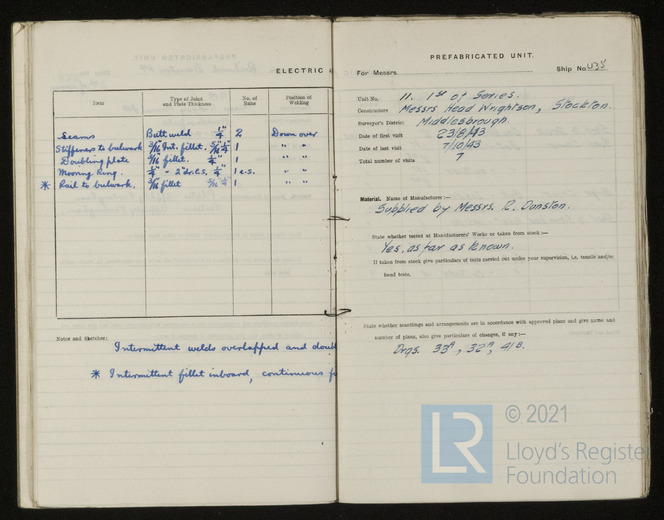 ELECTRIC
Item
Type of Joint and Plate Thickness
No. of Runs
Position of Welding
Seams Butt weld ¼" 2 Down over
Stiffeners to bulwark 3/16 Int. fillet. 1 " "
Doubling plate 3/16 fillet. ¼" 1 " "
Mooring Ring. ¼" 1 e.s. " "
* Rail to bulwark. 3/16 fillet 1 " "
Notes and Sketches:
Intermittent welds overlapped and doub
* Intermittent fillet inboard, continuous
PREFABRICATED UNIT.
For Messrs. Ship No. 435
Unit No. 11. 1st of Series.
Constructors Messrs Head Wrightson, Stockton.
Surveyor's District Middlesbrough.
Date of first visit 23/8/43
Date of last visit 7/10/43
Total number of visits 7
Material. Name of Manufacturer:—
Supplied by Messrs. R. Dunston.
State whether tested at Manufacturers' Works or taken from stock:—
Yes, as far as known.
If taken from stock give particulars of tests carried out under your supervision, i.e. tensile and/or
bend tests.
State whether scantlings and arrangements are in accordance with approved plans and give name and
number of plans, also give particulars of changes, if any:—
Drgs. 33A, 32A, 41B.
© 2021
LR
Lloyd's Register
Foundation